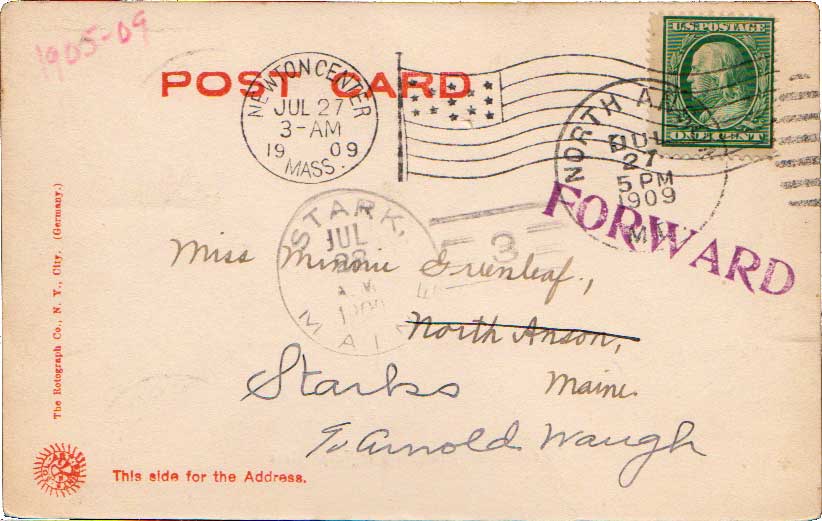 1905-09
POST CARD
U.S. POSTAGE
ONE CENT
NEWTON CENTER
JUL 27
3-AM
19 09
MASS.
NORTH
JUL
27
5 PM
1909
FORWARD
STARK,
JUL
28
MAINE
3
Miss Minnie Greenleaf,
North Anson,
Starks Maine.
To Arnold Waugh
The Rotograph Co., N. Y., City. (Germany.)
This side for the Address.